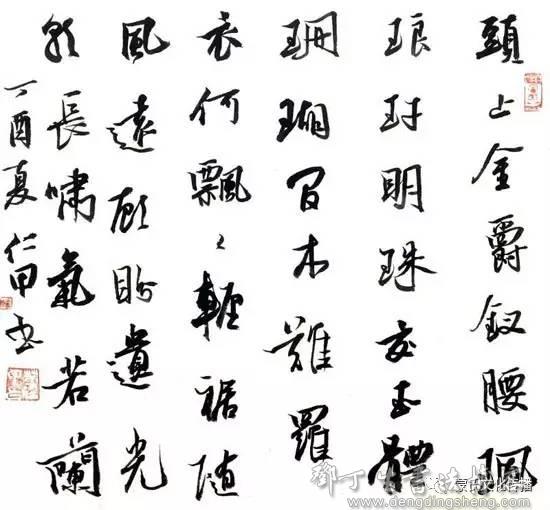 頭上金爵釵腰珮
琅玕明珠交玉體
珊瑚間木難羅
衣何飄〻輕裾随
風還顧盼遺光
彩長嘯氣若蘭
丁酉夏仁甲书
www.dengdingsheng.com